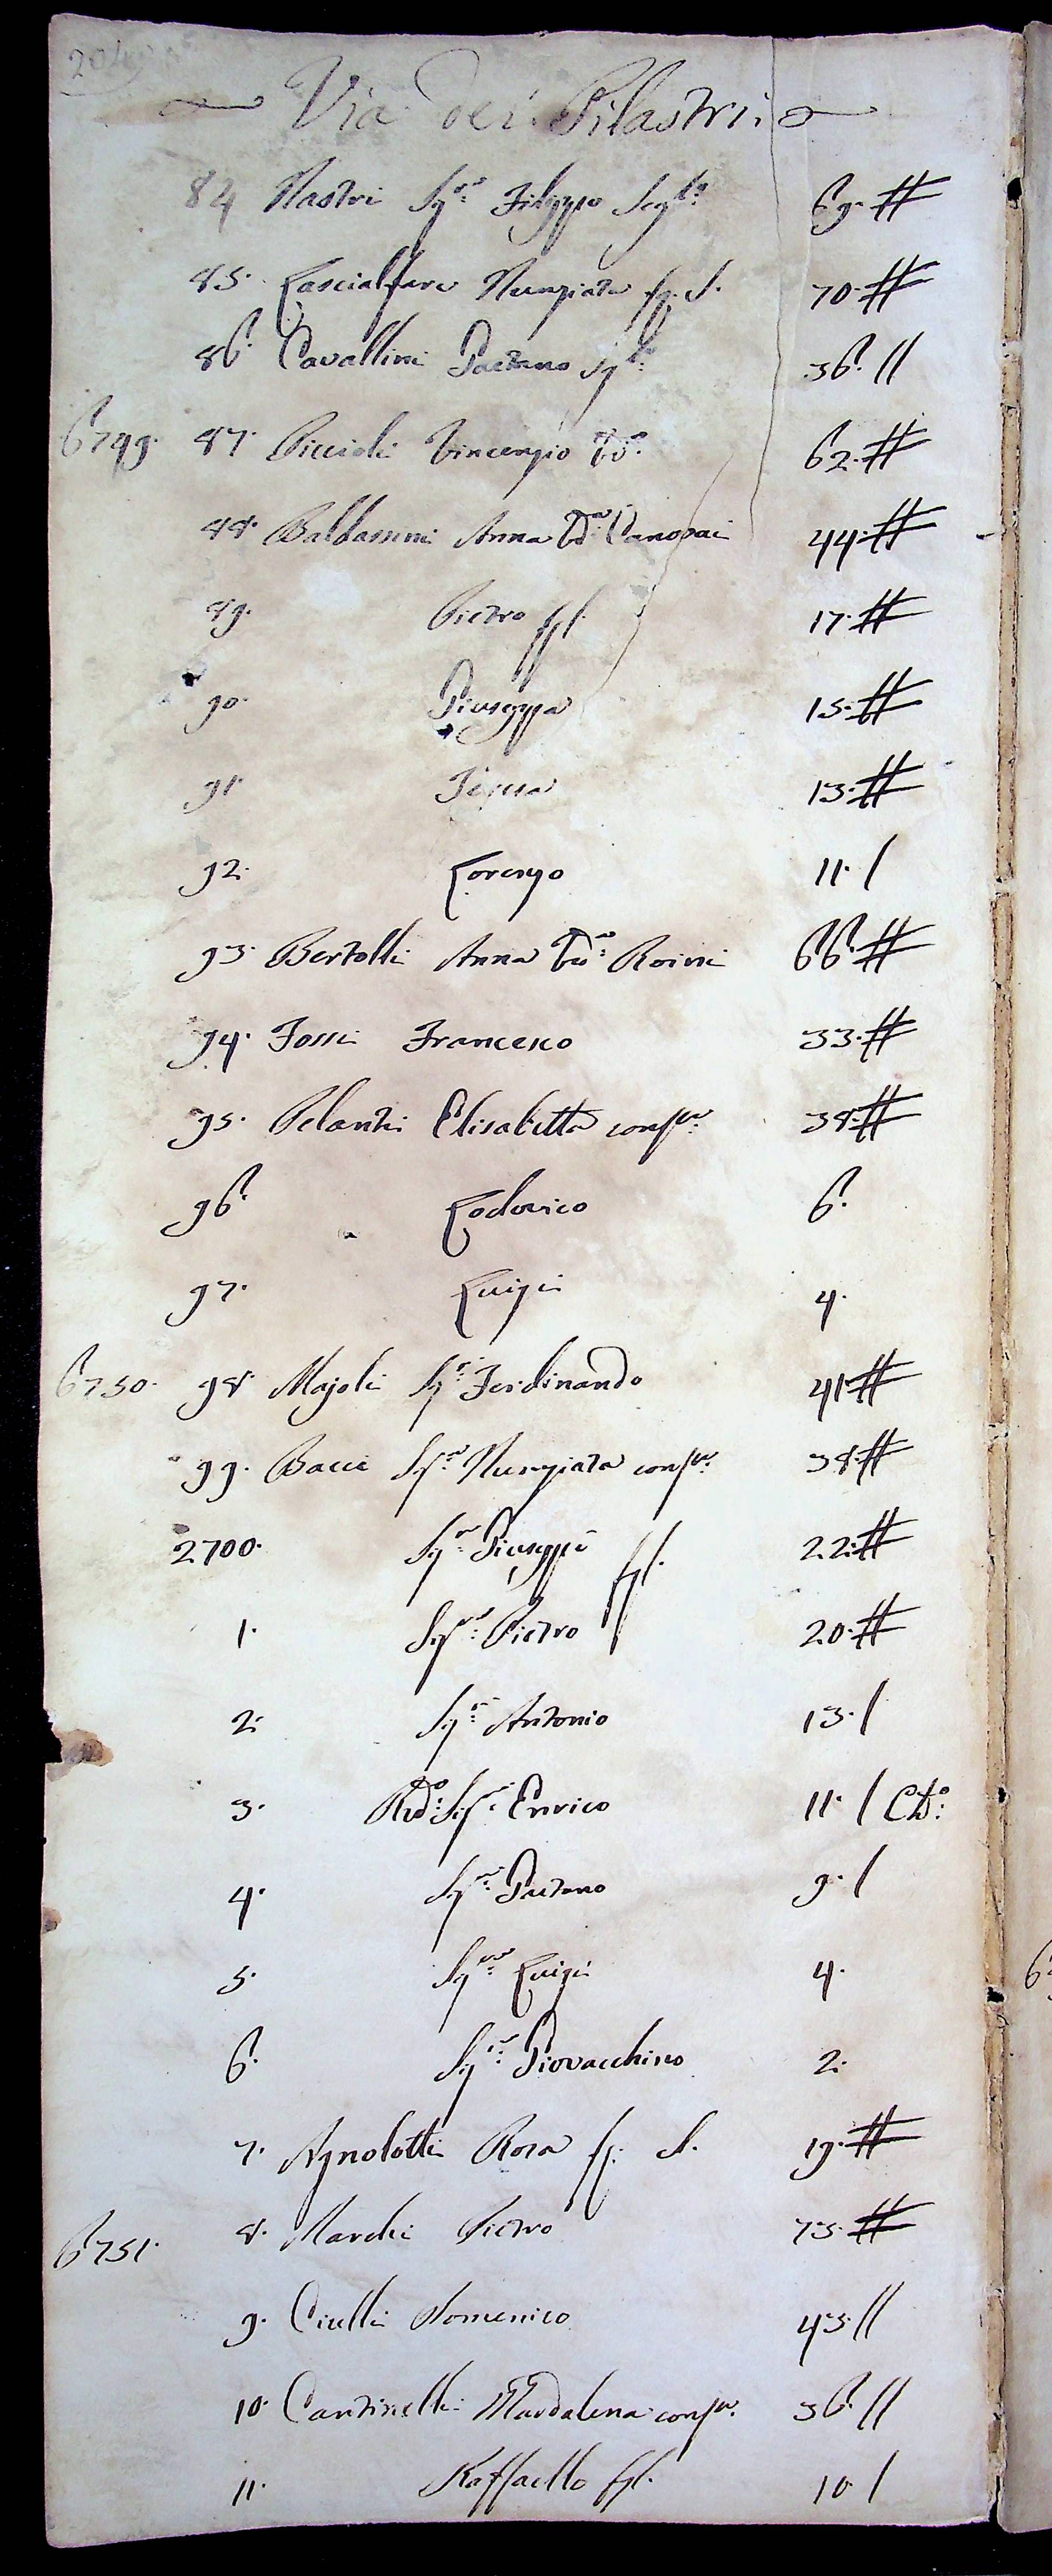 204
Via dei Pilastri
84 Nastri Sig.re Filippo Scap.lo 69. #
85. Lascialfare Nunziata fg. S. 70. #
86. Cavallini Gaetano Sp.lo 36. //
6749. 87. Piccioli Vincenzio Vo. 62. #
88. Baldassini Anna Va. Canovai 44. #
89. Pietro ffl. 17. #
90. Giuseppa 15. #
91. Teresa 13. #
92. Lorenzo 11. /
93. Bertolli Anna Va. Rossini 66. #
94. Fossi Francesco 33. #
95. Pelanti Elisabetta consor. 38. #
96. Lodovico 6.
97. Luigi 4.
6750. 98. Majoli Sig.re Ferdinando 41. #
99. Bacci Sig.ra Nunziata consor. 38. #
2700. Sig.re Giuseppe ffl. 22. #
1. Sig.re Pietro 20. #
2. Sig.re Antonio 13. /
3. Rdo. Sig.re Enrico 11. / Cho.
4. Sig.re Gaetano 9. /
5. Sig.re Luigi 4.
6. Sig.re Giovacchino 2.
7. Agnolotti Rosa f. S. 19. #
6751. 8. Marchi Pietro 75. #
9. Ciulli Domenico 45. //
10. Cantinelli Maddalena consor. 36. //
11. Raffaello ffl. 10. /